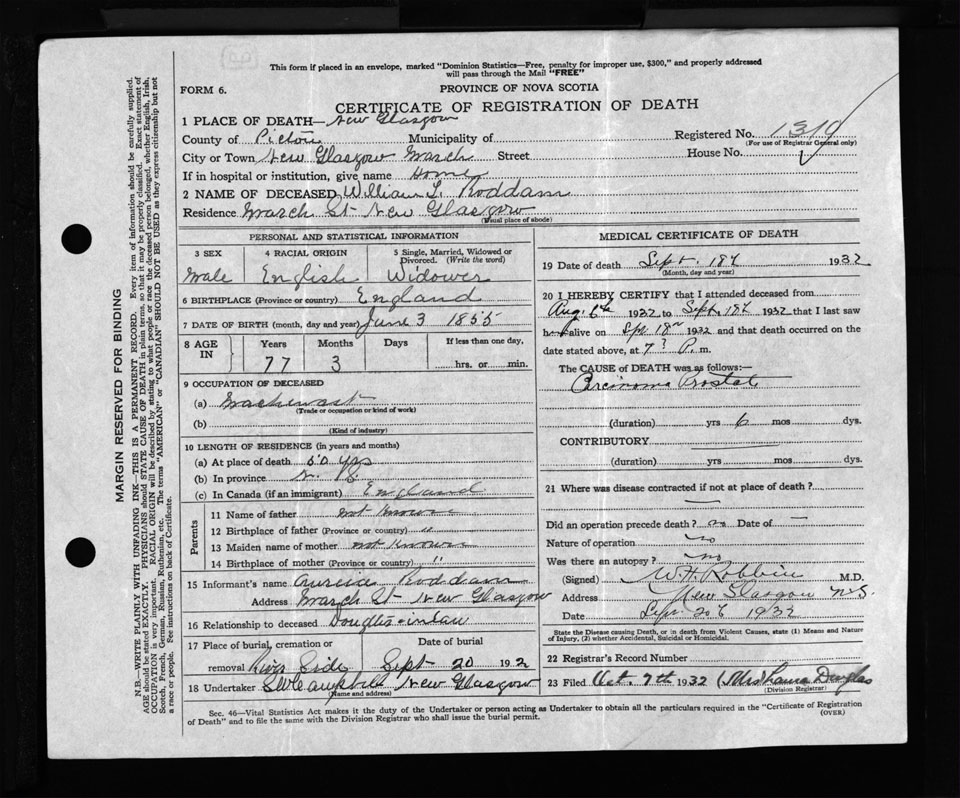 This form if placed in an envelope, marked "Dominion Statistics—Free, penalty for improper use, $300," and properly addressed
will pass through the Mail "FREE"
FORM 6.
PROVINCE OF NOVA SCOTIA
CERTIFICATE OF REGISTRATION OF DEATH
1 PLACE OF DEATH— New Glasgow
County of Pictou Municipality of Registered No. 1319
(For use of Registrar General only)
City or Town New Glasgow March Street House No.
If in hospital or institution, give name Home
2 NAME OF DECEASED William L. Roddam
Residence March St New Glasgow
(Usual place of abode)
PERSONAL AND STATISTICAL INFORMATION
3 SEX 4 RACIAL ORIGIN 5 Single, Married, Widowed or Divorced. (Write the word)
Male English Widower
6 BIRTHPLACE (Province or country) England
7 DATE OF BIRTH (month, day and year) June 3 1855
8 AGE IN Years Months Days If less than one day,
77 3 hrs. or min.
9 OCCUPATION OF DECEASED
(a)
(Trade or occupation or kind of work)
(b)
(Kind of industry)
10 LENGTH OF RESIDENCE (in years and months)
(a) At place of death 50 yrs
(b) In province
(c) In Canada (if an immigrant) England
Parents
11 Name of father not known
12 Birthplace of father (Province or country) "
13 Maiden name of mother not known
14 Birthplace of mother (Province or country) "
15 Informant's name Roddam
Address March St New Glasgow
16 Relationship to deceased
17 Place of burial, cremation or removal Date of burial
River Side Sept 20 192
18 Undertaker New Glasgow
(Name and address)
MEDICAL CERTIFICATE OF DEATH
19 Date of death Sept. 18th 1932
(Month, day and year)
20 I HEREBY CERTIFY that I attended deceased from
Aug. 6th 1932 to Sept. 18th 1932 that I last saw
h alive on Sep 18th 1932 and that death occurred on
date stated above, at 7 P. m.
The CAUSE of DEATH was as follows:—
Carcinoma Prostate
(duration) yrs 6 mos dys.
CONTRIBUTORY
(duration) yrs mos dys.
21 Where was disease contracted if not at place of death?
Did an operation precede death? no Date of —
Nature of operation no
Was there an autopsy? no
(Signed) W. H. Robbins M.D.
Address New Glasgow N.S.
Date Sept 20th 1932
State the Disease causing Death, or in death from Violent Causes, state (1) Means and Nature
of Injury, (2) whether Accidental, Suicidal or Homicidal.
22 Registrar's Record Number
23 Filed Oct. 7th 1932 Douglas
(Division Registrar)
Sec. 46—Vital Statistics Act makes it the duty of the Undertaker or person acting as Undertaker to obtain all the particulars required in the "Certificate of Registration
of Death" and to file the same with the Division Registrar who shall issue the burial permit.
(OVER)
MARGIN RESERVED FOR BINDING
N.B.—WRITE PLAINLY WITH UNFADING INK—THIS IS A PERMANENT RECORD. Every item of information should be carefully supplied.
AGE should be stated EXACTLY. PHYSICIANS should STATE CAUSE OF DEATH in plain terms, so that it may be properly classified. Exact statement of
OCCUPATION is very important. RACIAL ORIGIN will be described by stating to what people or race the deceased person belonged, whether English, Irish,
Scotch, French, German, Russian, Ruthenian, etc. The terms "AMERICAN" or "CANADIAN" SHOULD NOT BE USED as they express citizenship but not
a race or people. See instructions on back of Certificate.